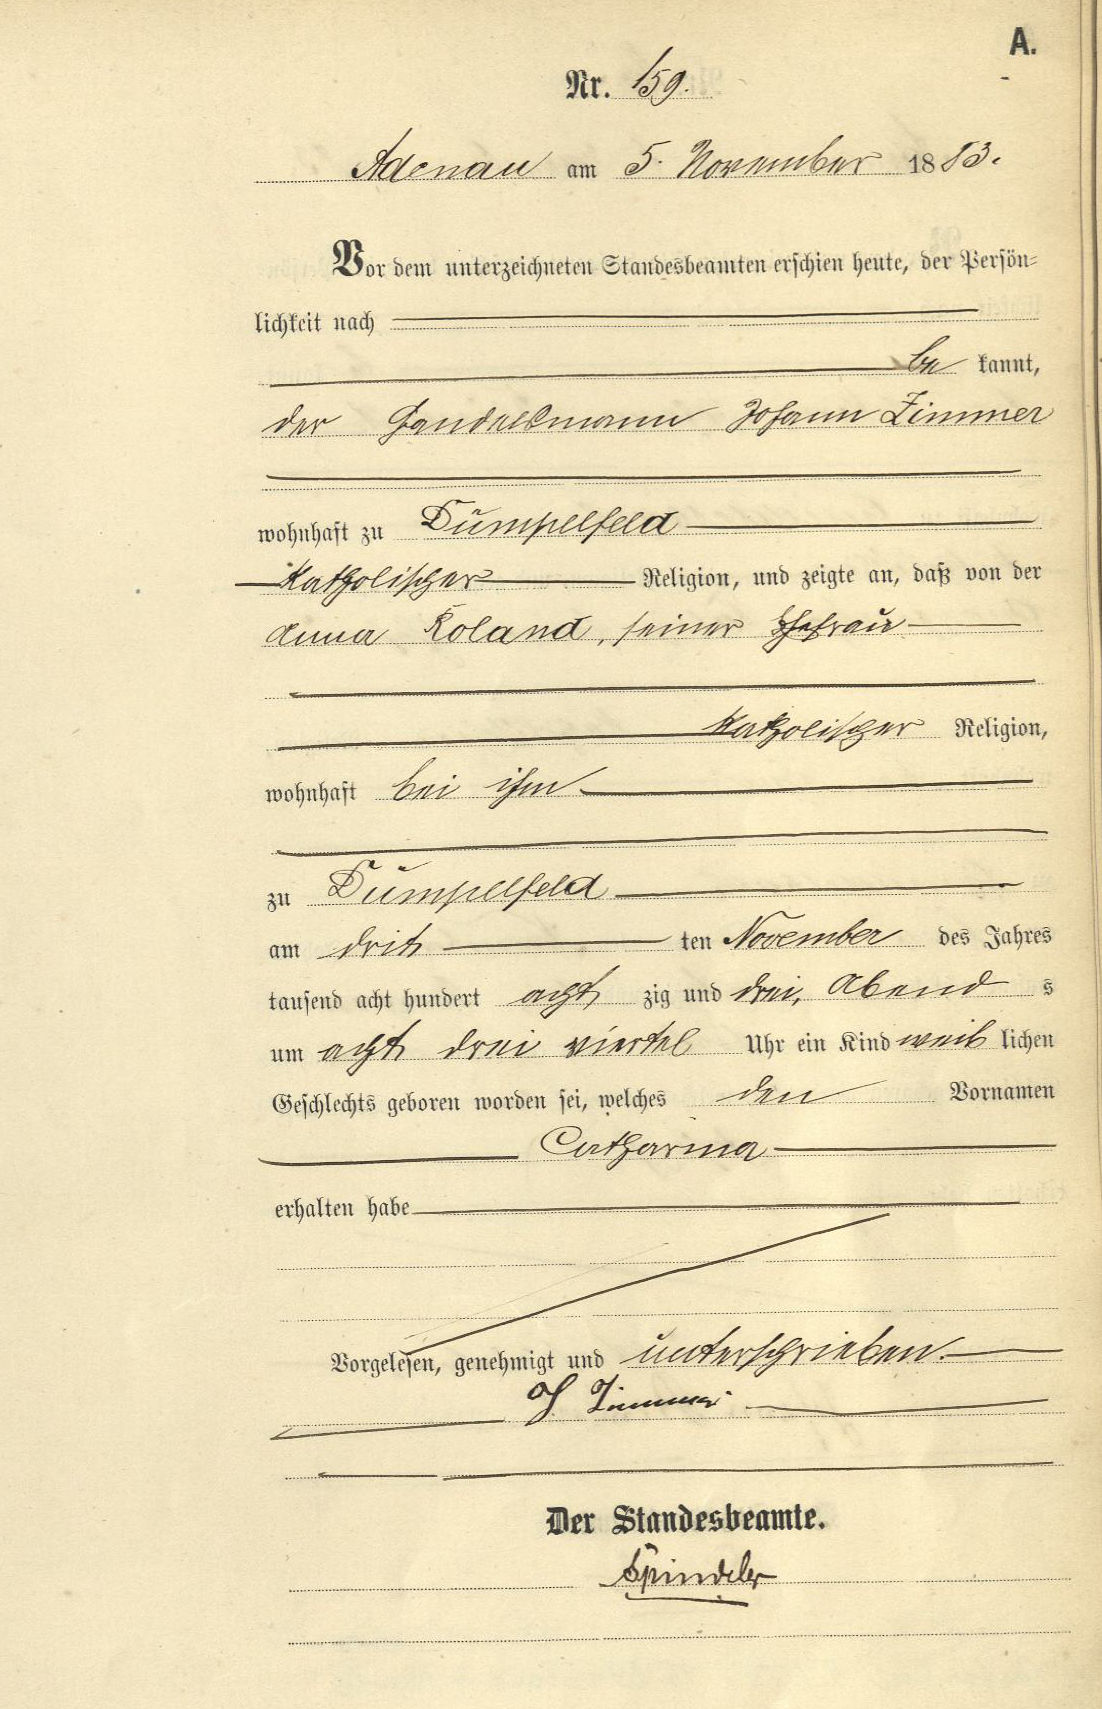 A.
Nr. 159.
Adenau am 5. November 1883.
Vor dem unterzeichneten Standesbeamten erschien heute, der Persön-
lichkeit nach
be kannt,
der Handelsmann Johann Zimmer
wohnhaft zu Dümpelfeld
katholischer Religion, und zeigte an, daß von der
Anna Roland, seiner Ehefrau
katholischer Religion,
wohnhaft bei ihm
zu Dümpelfeld
am drit ten November des Jahres
tausend acht hundert acht zig und drei, Abend s
um acht drei viertel Uhr ein Kind weib lichen
Geschlechts geboren worden sei, welches den Vornamen
Catharina
erhalten habe
Vorgelesen, genehmigt und unterschrieben.
J Zimmer
Der Standesbeamte.
Spindeler